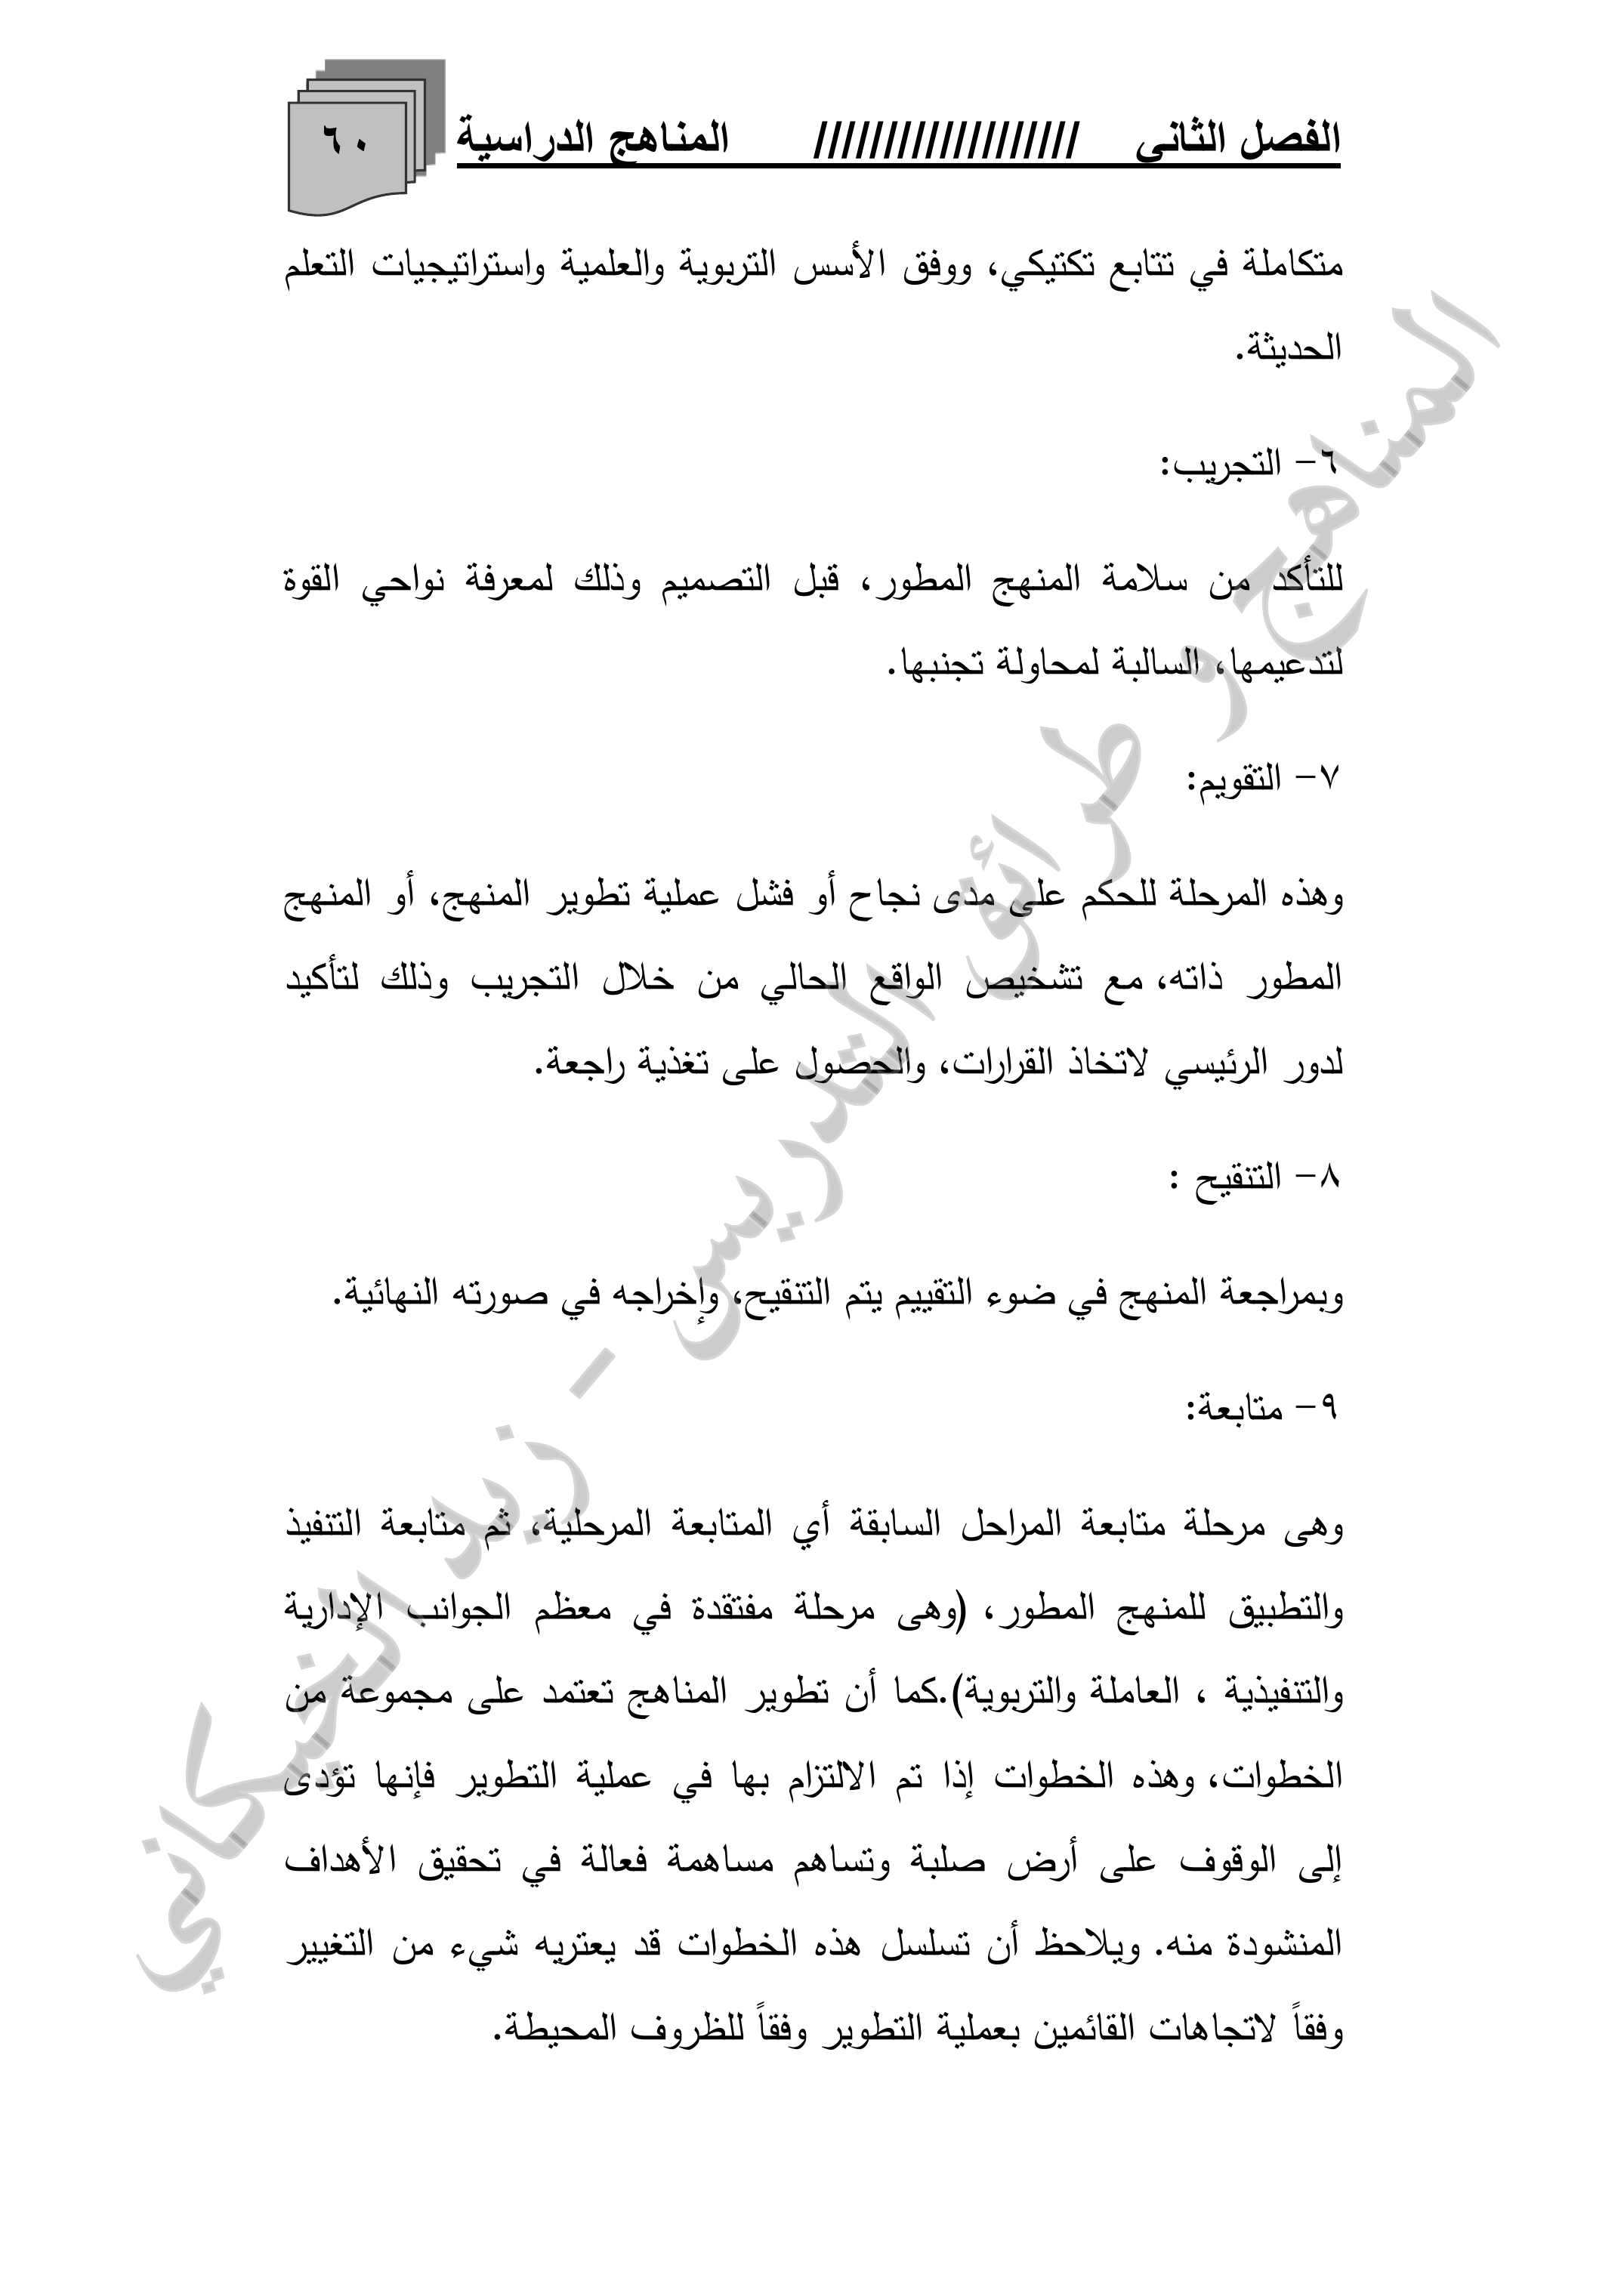 الفصل الثاني /////////////////// المناهج الدراسية
٦٠
متكاملة في تتابع تكتيكي، ووفق الأسس التربوية والعلمية واستراتيجيات التعلم
الحديثة.
٦- التجريب:
للتأكد من سلامة المنهج المطور، قبل التصميم وذلك لمعرفة نواحي القوة
لتدعيمها، السالبة لمحاولة تجنبها.
٧- التقويم:
وهذه المرحلة للحكم على مدى نجاح أو فشل عملية تطوير المنهج، أو المنهج
المطور ذاته، مع تشخيص الواقع الحالي من خلال التجريب وذلك لتأكيد
لدور الرئيسي لاتخاذ القرارات، والحصول على تغذية راجعة.
٨- التنقيح :
وبمراجعة المنهج في ضوء التقييم يتم التنقيح، وإخراجه في صورته النهائية.
٩- متابعة:
وهى مرحلة متابعة المراحل السابقة أي المتابعة المرحلية، ثم متابعة التنفيذ
والتطبيق للمنهج المطور، (وهى مرحلة مفتقدة في معظم الجوانب الإدارية
والتنفيذية ، العاملة والتربوية).كما أن تطوير المناهج تعتمد على مجموعة من
الخطوات، وهذه الخطوات إذا تم الالتزام بها في عملية التطوير فإنها تؤدى
إلى الوقوف على أرض صلبة وتساهم مساهمة فعالة في تحقيق الأهداف
المنشودة منه. ويلاحظ أن تسلسل هذه الخطوات قد يعتريه شيء من التغيير
وفقاً لاتجاهات القائمين بعملية التطوير وفقاً للظروف المحيطة.
المناهج و طرائق التدريس - زيد الخيكاني